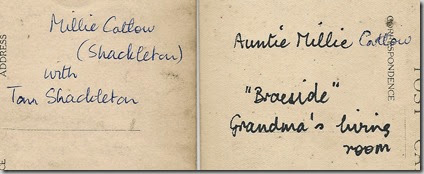 ADDRESS
Millie Catlow
(Shackleton)
with
Tom Shackleton
Auntie Millie Catlow
CORRESPONDENCE
"Braeside"
Grandma's living
room